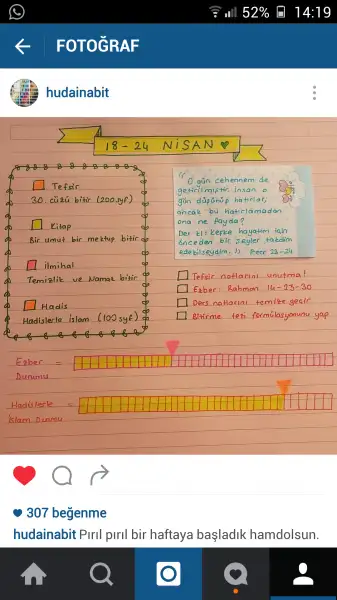 52% 14:19
FOTOĞRAF
hudainabit
18 - 24 NİSAN
Tefsir
30. cüzü bitir (200.syf)
Kitap
Bir umut bir mektup bitir
İlmihal
Temizlik ve Namaz bitir
Hadis
Hadislerle İslam (100 syf)
O gün cehennem de
getirilmiştir. İnsan o
gün düşünüp hatırlar,
ancak bu hatırlamadan
ona ne fayda?
Der ki: Keşke hayatım için
önceden bir şeyler takdim
edebilseydim. Fecr 23-24
Tefsir notlarını unutma!
Ezber: Rahman 16-23-30
Ders notlarını temize geçir
Bitirme tezi formülasyonunu yap
Ezber =
Durumu
Hadislerle =
İslam Durumu
307 beğenme
hudainabit Pırıl pırıl bir haftaya başladık hamdolsun.